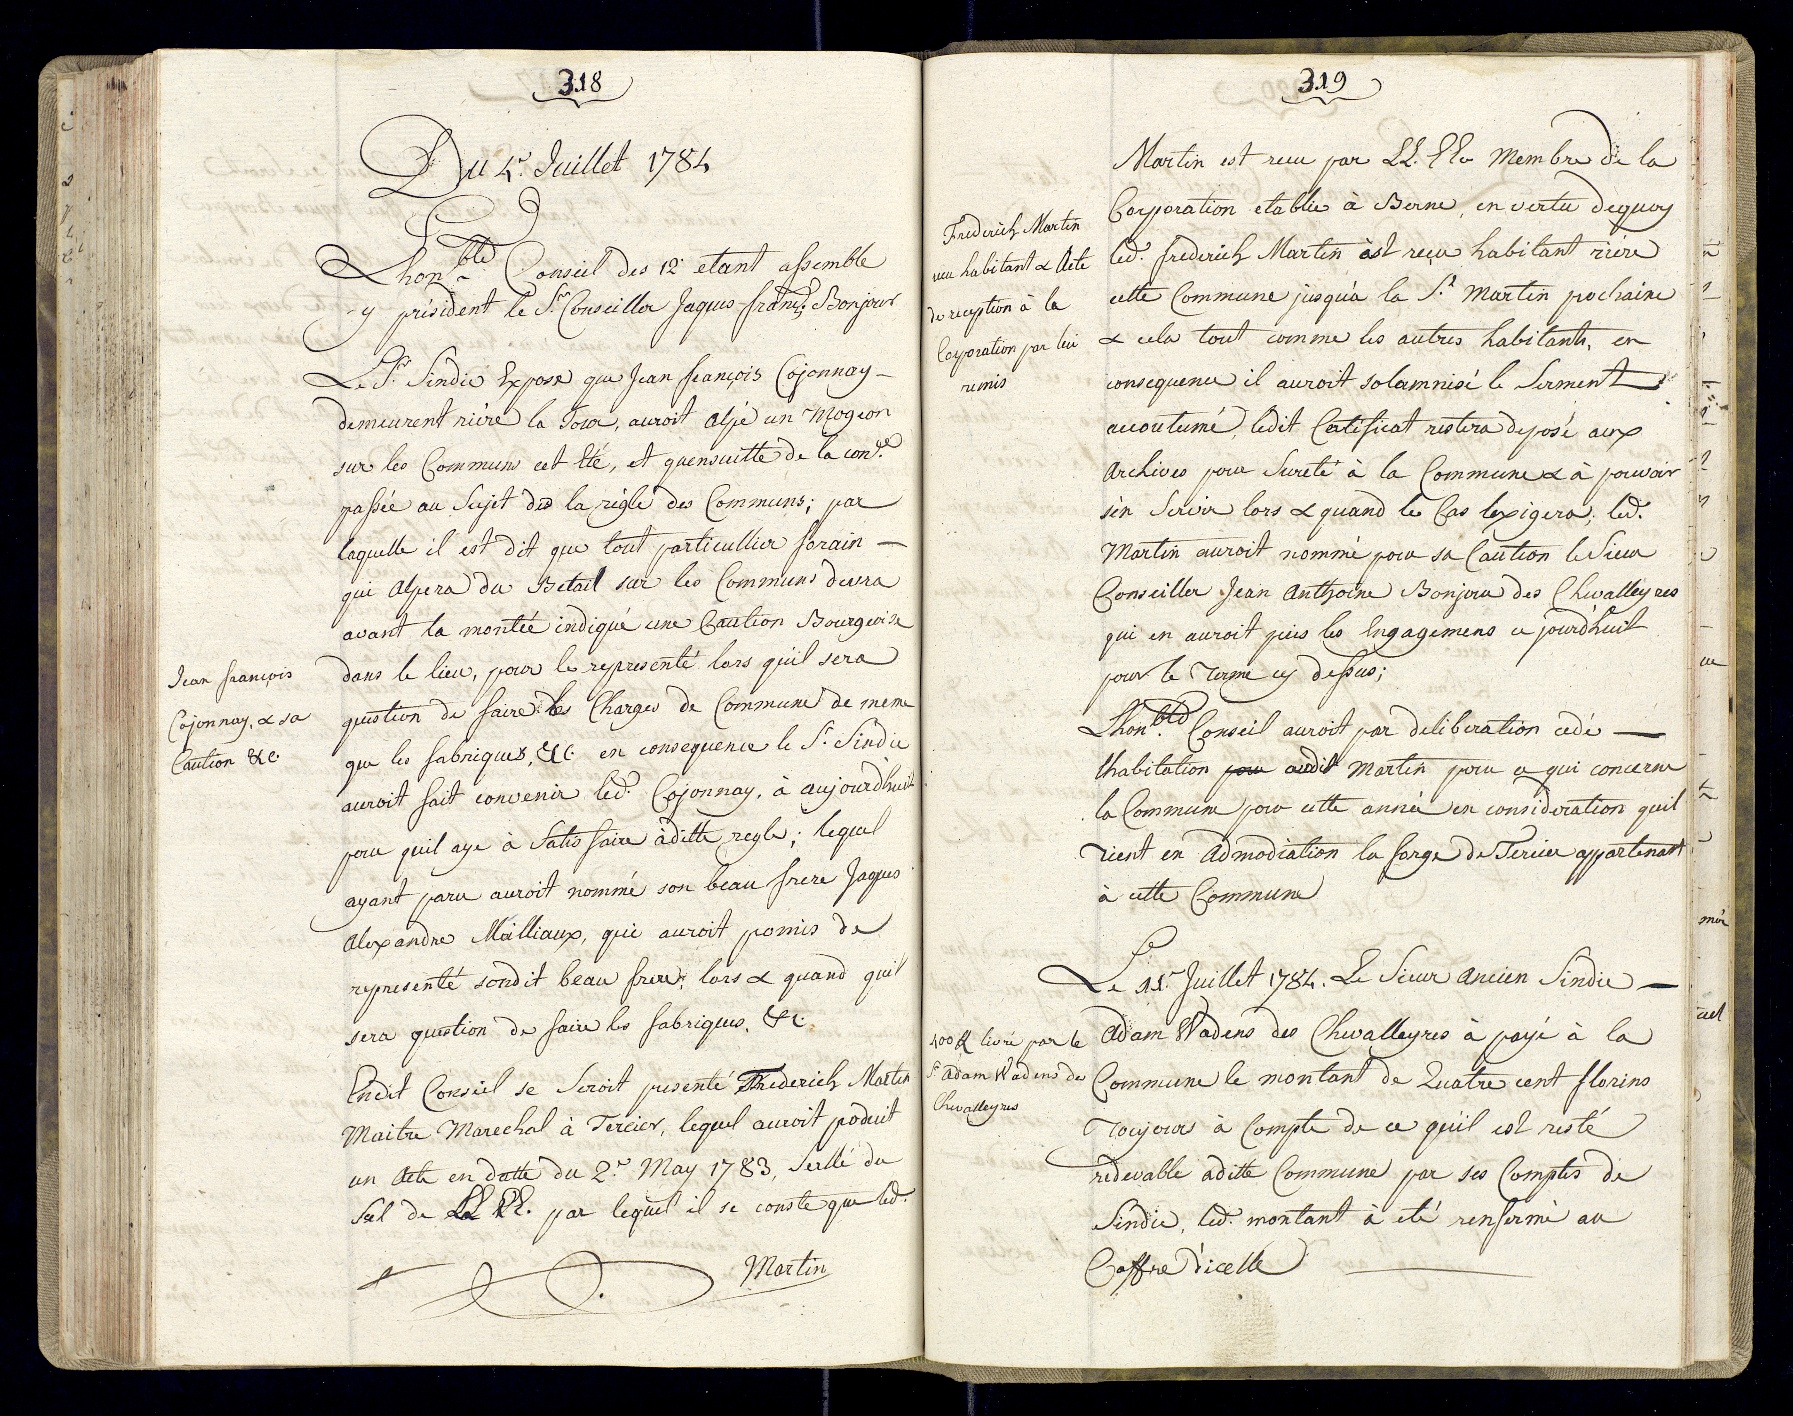 318
Du 4.e Juillet 1784
Lhon.ble Conseil des 12 etant assemble
y président le S.r Conseiller Jaques franç.s Bonjour
Le S.r Sindic Expose que Jean françois Cojonnay
demeurent rière la Tour, auroit alpé un Mogeon
sur les Communs cet Eté, et quensuitte de la con.de
passée au Sujet de la règle des Communs; par
laquelle il est dit que tout particullier forain
qui alpera du Betail sur les Communs devra
avant la montée indiqué une Caution Bourgeoise
Jean françois
Cojonnay, & sa
Caution &c.
dans le lieu, pour le representé lors qúil sera
question de faire les Charges de Commune de meme
que les fabriques, &c. en consequence le S.r Sindic
auroit fait convenir led.t Cojonnay, à aujourdhuit
pour quil aye à Satisfaire àditte regle; lequel
ayant paru auroit nommé son beau frere Jaques
Alexandre Mailliaux, qui auroit pomis de
representé sondit beau frere; lors & quand quil
sera question de faire les fabriques, &c.
Endit Conseil se Seroit presenté Frederich Martin
Maitre Marechal à Tercier, lequel auroit poduit
un Acte en datte du 2.e May 1783, Sellé du
Sel de LL EE. par lequel il se conste que led.
Martin
319
Martin est recu par LL. EEe Membre de la
Corporation etablie à Berne, en vertu dequoy
Frederich Martin
recu habitant & Acte
de reception à la
Corporation par lui
remis
led. frederich Martin èst reçu habitant riere
cette Commune jusqúa la S.t Martin pochaine
& cela tout comme les autres habitants, en
consequence il auroit solamnisé le Serment
accoutumé, ledit Certificat restera deposé aux
Archives pour Sureté à la Commune & à pouvoir
sèn Servir lors & quand le Cas lexigera; led.
Martin auroit nommé pour sa Caution le Sieur
Conseiller Jean Anthoine Bonjour des Chevalleyres
qui en auroit pris les Engagemens ce jourdhuit
pour le Terme cy dessus;
Lhon.ble Conseil auroit par deliberation cedé
lhabitation pour audit Martin pour ce qui concerne
la Commune pour cette année en considération quil
tient en Admodiation la forge de Tercier appartenant
à cette Commune
Le 11.e Juillet 1784. Le Sieur Ancien Sindic
400 fl livré par le
S.r Adam Wadens des
Chevalleyres
Adam Wadens des Chevalleyres à payé à la
Commune le montant de Quatre cent florins
Toujours à Compte de ce qúil est resté
redevable aditte Commune par ses Comptes de
Sindic, led. montant à eté renfermé au
Coffre dicelle